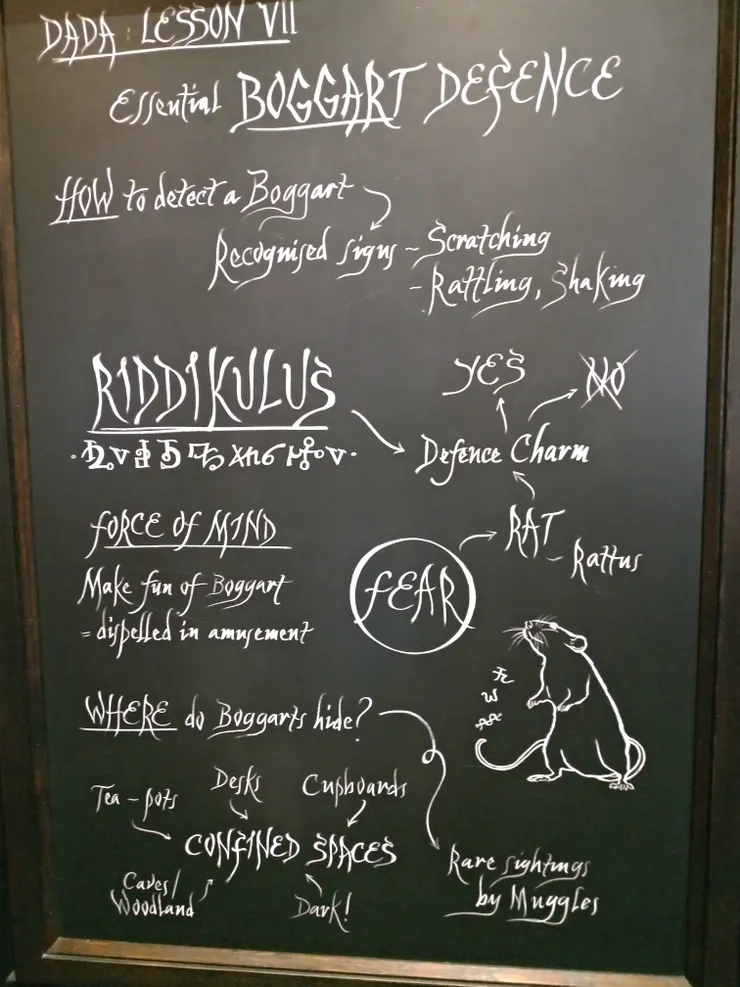 DADA: LESSON VII
Essential BOGGART DEFENCE
HOW to detect a Boggart
Recognised signs - Scratching
- Rattling, Shaking
RIDDIKULUS
YES
NO
Defence Charm
FORCE OF MIND
Make fun of Boggart
= dispelled in amusement
FEAR
RAT
- Rattus
WHERE do Boggarts hide?
Tea-pots
Desks
Cupboards
CONFINED SPACES
Caves/
Woodland
Dark!
Rare sightings
by Muggles